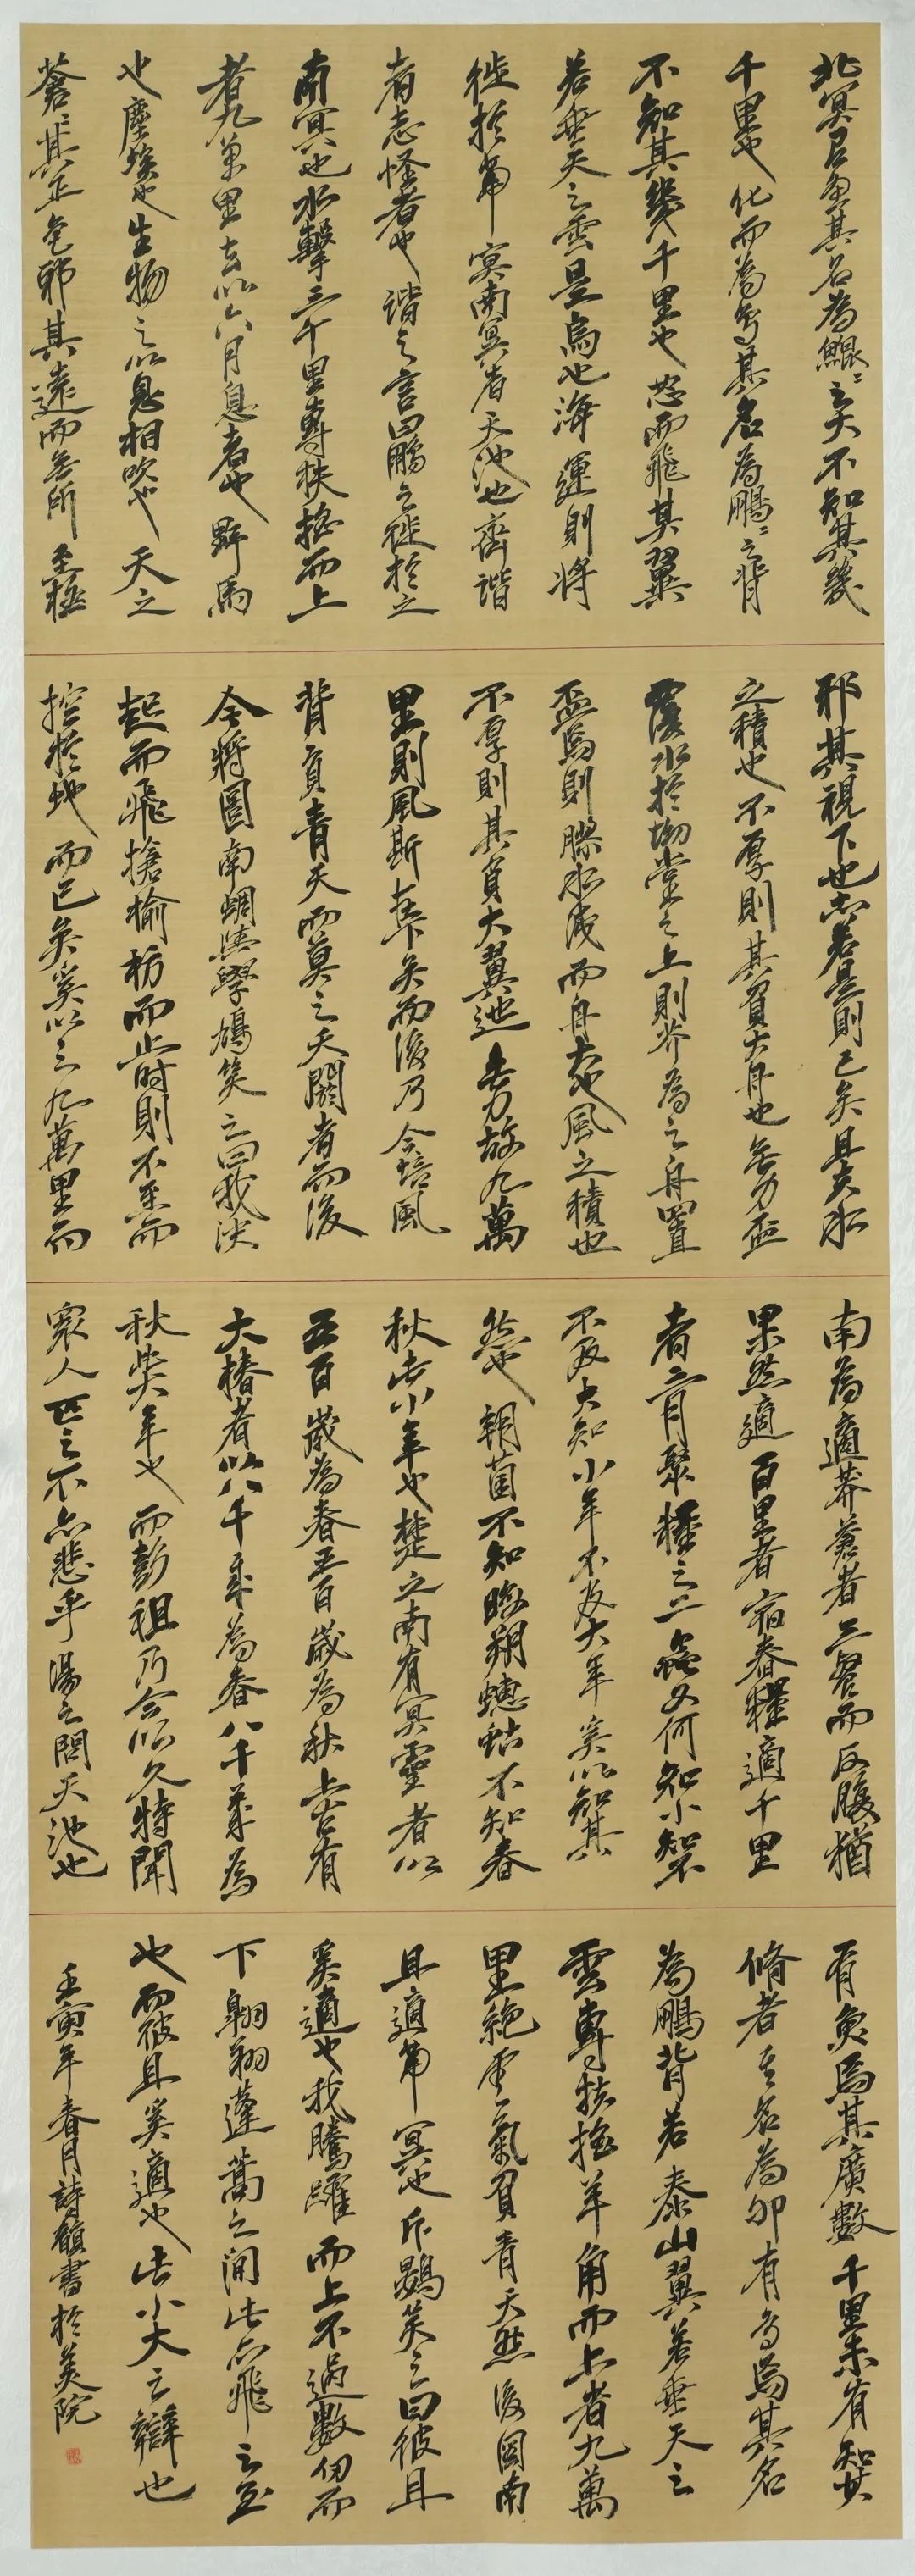 北冥有魚其名為鯤〻之大不知其幾
千里也化而為鳥其名為鵬〻之背
不知其幾千里也怒而飛其翼
若垂天之雲是鳥也海運則將
徙於南冥南冥者天池也齊諧
者志怪者也諧之言曰鵬之徙於之
南冥也水擊三千里摶扶搖而上
者九萬里去以六月息者也野馬
也塵埃也生物之以息相吹也天之
蒼〻其正色邪其遠而無所至極
邪其視下也亦若是則已矣且夫水
之積也不厚則其負大舟也無力盃
覆水於坳堂之上則芥為之舟置
盃焉則膠水淺而舟大也風之積也
不厚則其負大翼也無力故九萬
里則風斯在下矣而後乃今培風
背負青天而莫之夭閼者而後
今將圖南蜩與學鳩笑之曰我決
起而飛搶榆枋而止時則不至而
控於地而已矣奚以之九萬里而
南為適莽蒼者三餐而反腹猶
果然適百里者宿舂糧適千里
者三月聚糧之二蟲又何知小知不
不及大知小年不及大年奚以知其
然也朝菌不知晦朔蟪蛄不知春
秋此小年也楚之南有冥靈者以
五百歲為春五百歲為秋上古有
大椿者以八千歲為春八千歲為
秋此大年也而彭祖乃今以久特聞
眾人匹之不亦悲乎湯之問天池也
有魚焉其廣數千里未有知其
脩者其名為卵有鳥焉其名
為鵬背若泰山翼若垂天之
雲摶扶搖羊角而上者九萬
里絕雲氣負青天然後圖南
且適南冥也斥鴳笑之曰彼且
奚適也我騰躍而上不過數仞而
下翱翔蓬蒿之間此亦飛之至
也而彼且奚適也此小大之辯也
壬寅年春月詩顏書於美院